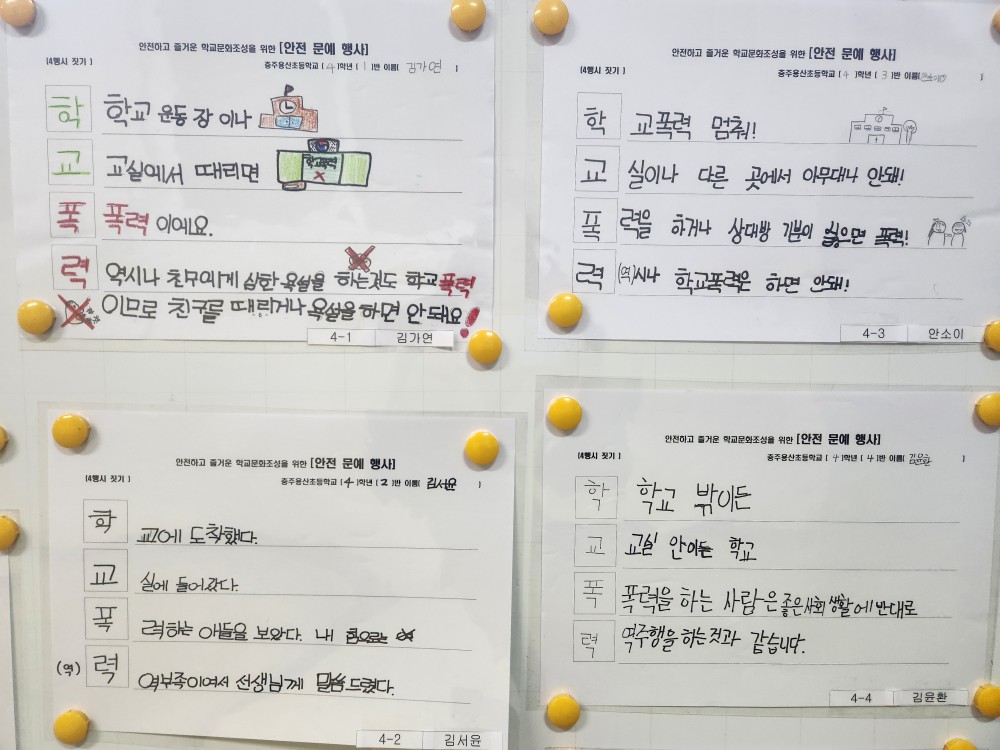 안전하고 즐거운 학교문화조성을 위한 [안전 문예 행사]
[4행시 짓기]
충주용산초등학교 [ 4 ]학년 [ 1 ]반 이름( 김가연 )
학 학교 운동 장 이나
교 교실에서 때리면
학교폭력 X
폭 폭력 이에요.
력 역시나 친구에게 심한 욕설을 하는것도 학교 폭력
이므로 친구를 때리거나 욕설을 하면 안 돼요!
4-1 김가연
안전하고 즐거운 학교문화조성을 위한 [안전 문예 행사]
[4행시 짓기]
충주용산초등학교 [ 4 ]학년 [ 3 ]반 이름( )
학 교폭력 멈춰!
교 실이나 다른 곳에서 아무대나 안돼!
폭 력을 하거나 상대방 기분이 싫으면 폭력!
력 (역)시나 학교폭력은 하면 안돼!
4-3 안소이
안전하고 즐거운 학교문화조성을 위한 [안전 문예 행사]
[4행시 짓기]
충주용산초등학교 [ 4 ]학년 [ 2 ]반 이름( 김서윤 )
학 교에 도착했다.
교 실에 들어갔다.
폭 력하는 애들을 보았다. 내 힘으로는
(역) 력 역부족이여서 선생님께 말씀 드렸다.
4-2 김서윤
안전하고 즐거운 학교문화조성을 위한 [안전 문예 행사]
[4행시 짓기]
충주용산초등학교 [ 4 ]학년 [ 4 ]반 이름( 김윤환 )
학 학교 밖이든
교 교실 안이든 학교
폭 폭력을 하는 사람은 좋은 사회 생활에 반대로
력 역주행을 하는것과 같습니다.
4-4 김윤환